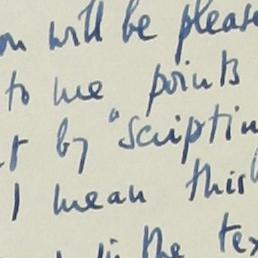 will be please
to me points
by "scriptin
I mean this
in the tex